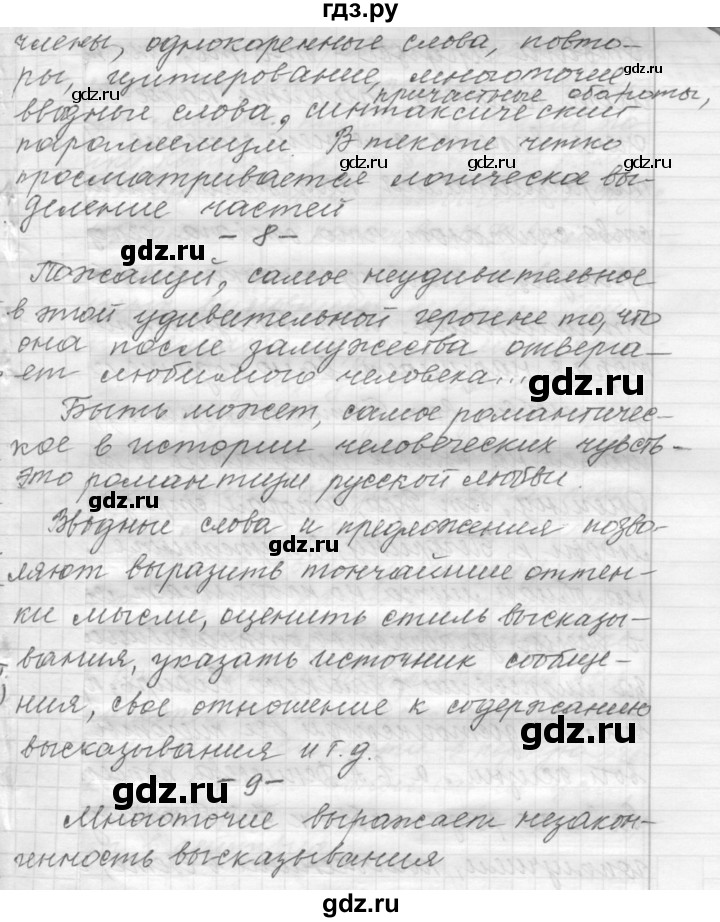 гдз.ру
члены, однокоренные слова, повто-
ры, цитирование, многоточие
причастные обороты,
вводные слова, синтаксический
параллелизм. В тексте четко
просматривается логическое вы-
деление частей
- 8 -
Пожалуй, самое неудивительное
в этой удивительной героине то, что
она после замужества отверга-
ет любимого человека...
Быть может, самое романтичес-
кое в истории человеческих чувств -
это романтизм русской любви.
Вводные слова и предложения позво-
ляют выразить тончайшие оттен-
ки мысли, оценить стиль высказы-
вания, указать источник сообще-
ния, свое отношение к содержанию
высказывания и т.д.
- 9 -
Многоточие выражает незакон-
ченность высказывания
gdz.ru
gdz.ru
gdz.ru
gdz.ru
gdz.ru
gdz.ru
gdz.ru
gdz.ru
gdz.ru
gdz.ru
gdz.ru